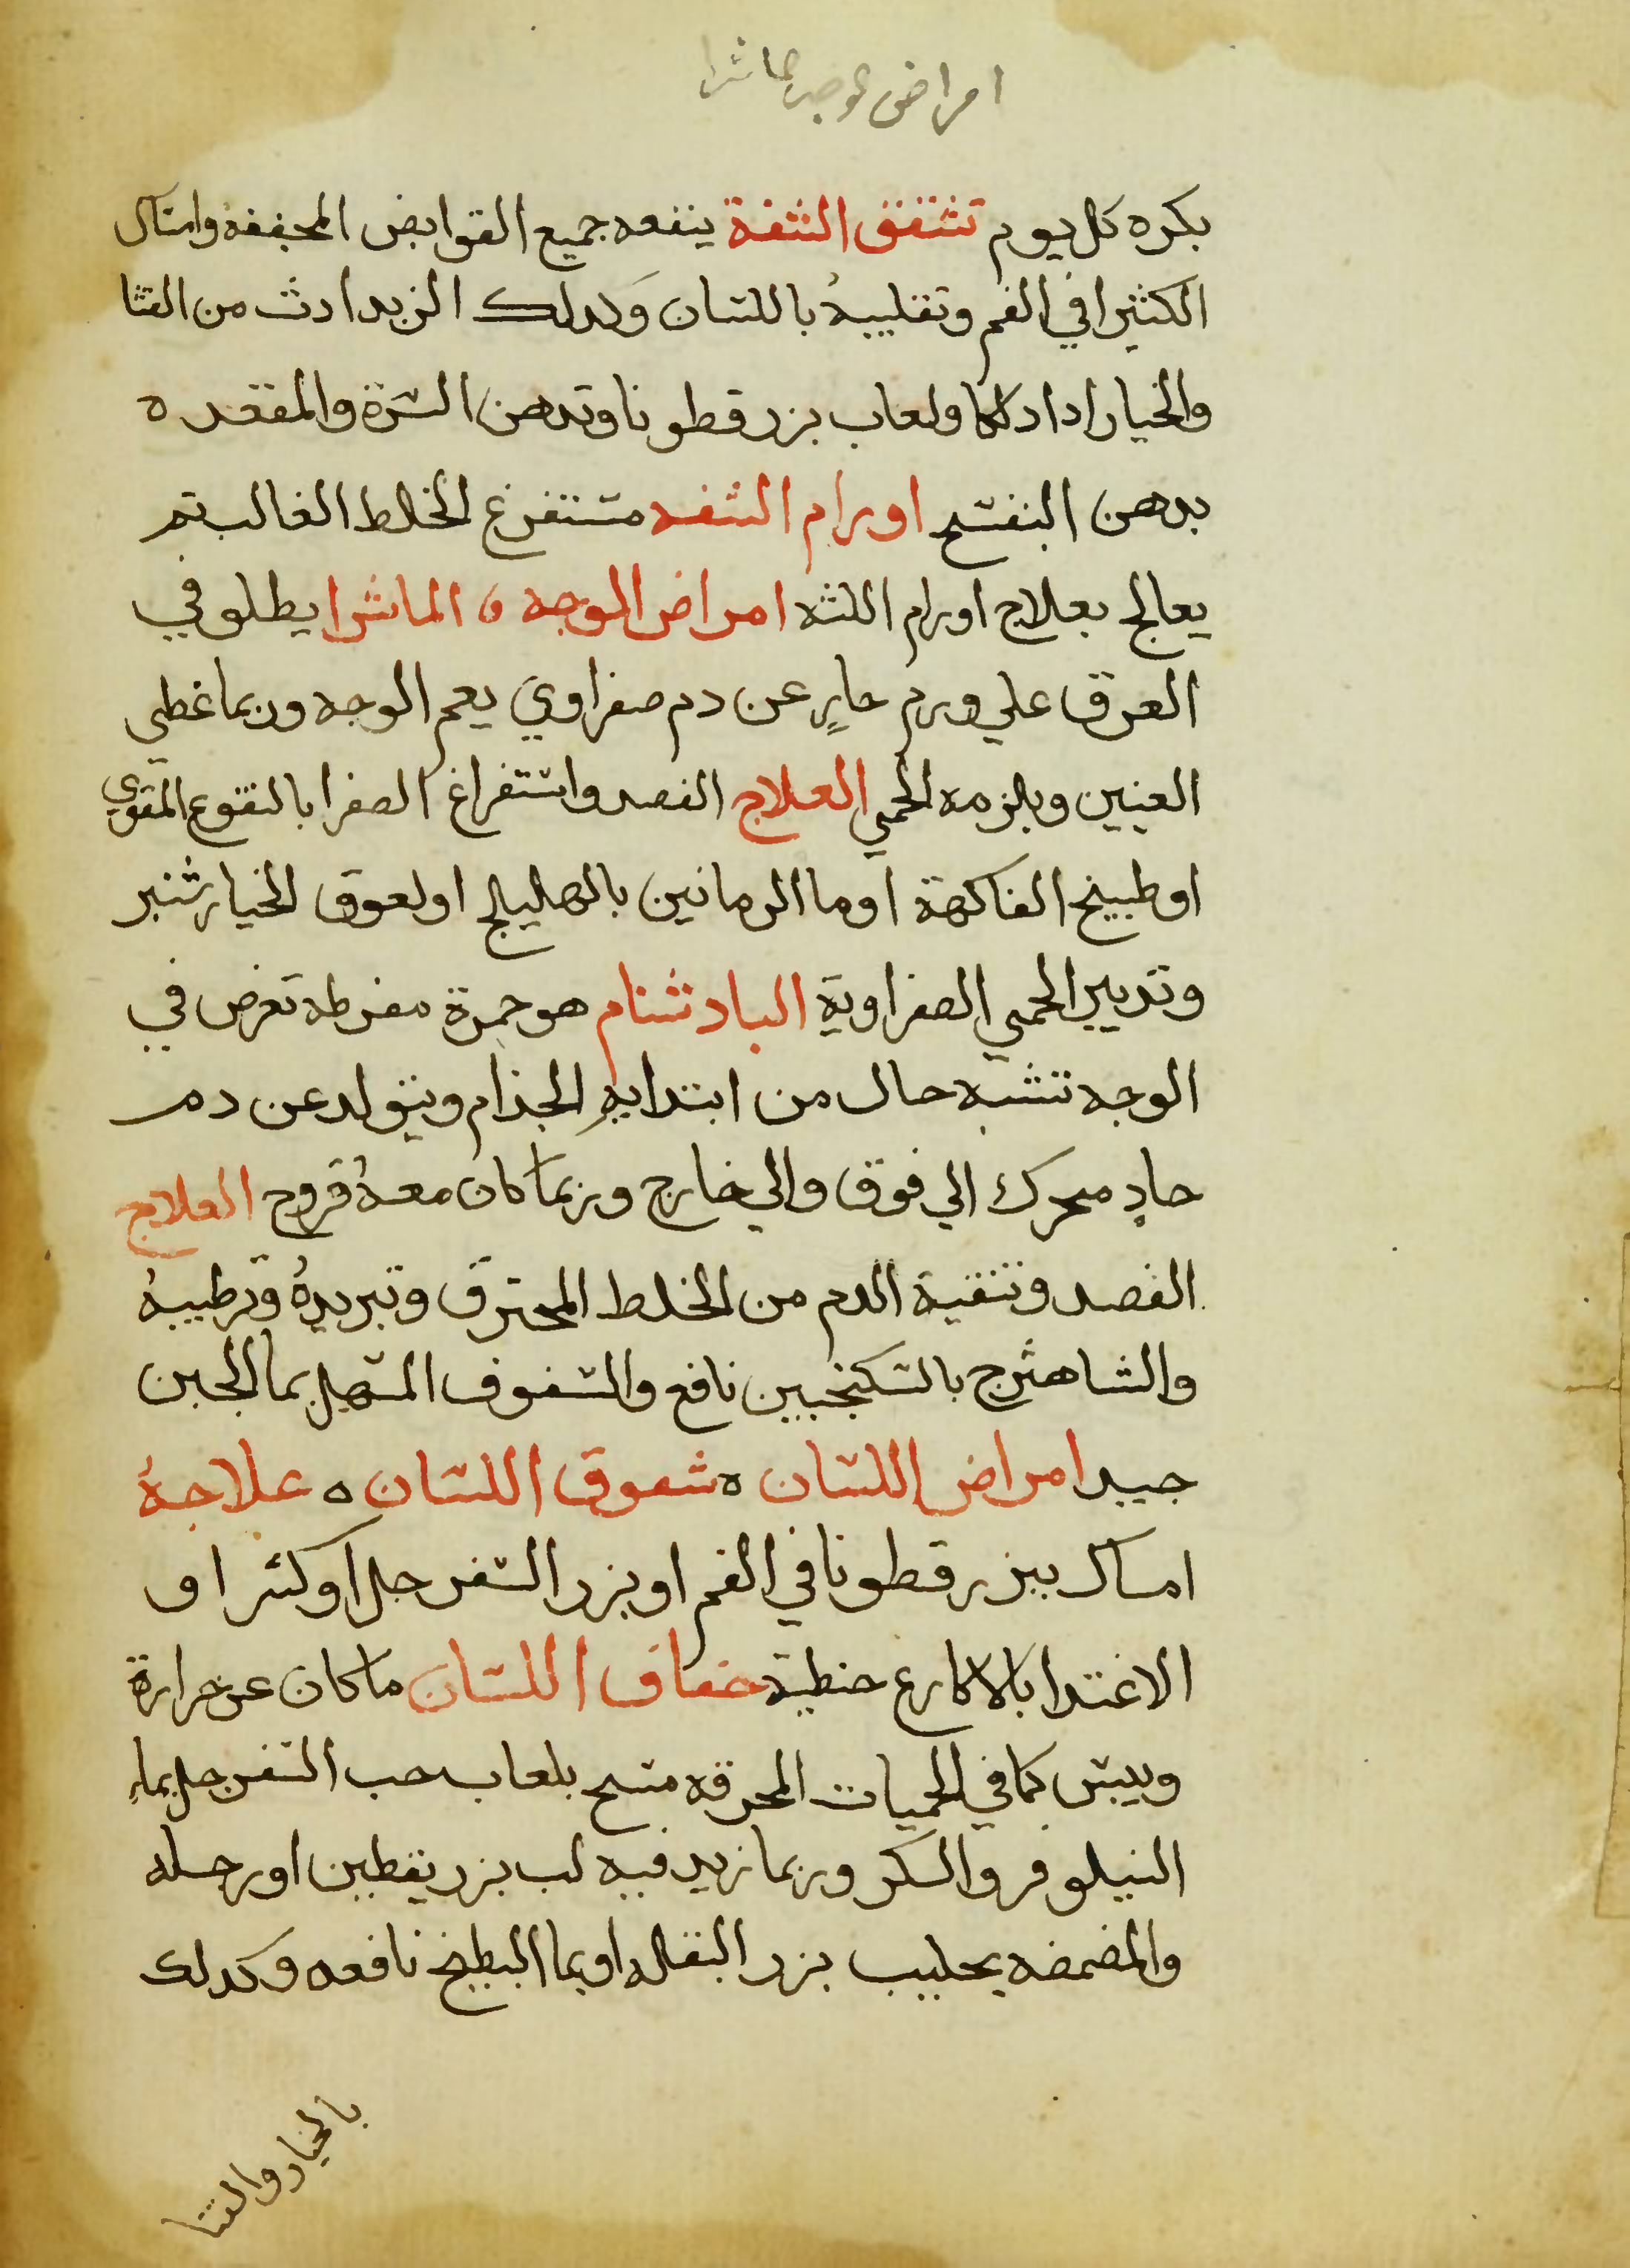 امراض الوجه الماشرا
بكره كل يوم تشقق الشفة ينفعه جميع القوابض المجففة وامساك
الكثيرا في الفم وتقليبهُ باللسان وكدلك الزبد ادث من القثا
والخيار ادا دلكا ولعاب بزر قطونا وتدهن السرة والمقعده
بدهن البنفسج اورام الشفه مستفرغ الخلط الغالب تم
يعالج بعلاج اورام اللثه امراض الوجه ه الماشرا يطلو في
العرق علي ورم حارٍ عن دم صفراوي يعم الوجه وربما غطي
العنين ويلزمه الحمي العلاج الفصد واستفراغ الصفرا بالنقوع المقوي
او طبيخ الفاكهة او ما الرمانين بالهليلج او لعوق الخيار شنبر
وتدبير الحمي الصفراوية البادشنام هو حمرة مفرطه تعرض في
الوجه تشبه حال من ابتدا به الجذام ويتولد عن دم
حادٍ محرك الي فوق والي خارج وربما كان معهُ قروح العلاج
الفصد وتنقية الدم من الخلط المحترق وتبريدهُ وترطيبهُ
والشاهترج بالسكنجبين نافع والسفوف المسهل بما الجبن
جيد امراض اللسان ه شقوق اللسان ه علاجهُ
امساك ببزر قطونا في الفم او بزر السفرجل او كثيرا و
الاغتدا بالاكارع حنطية جفاف اللسان ما كان عن حرارة
ويبس كما في الحميات المحرقه مسح بلعاب حب السفرجل بماءِ
النيلوفر والسكر وربما زيد فيه لب بزر يقطين او رجله
والمضمضه بحليب بزر البقله او بما البطيخ نافعه وكدلك
بالخيار والقثا